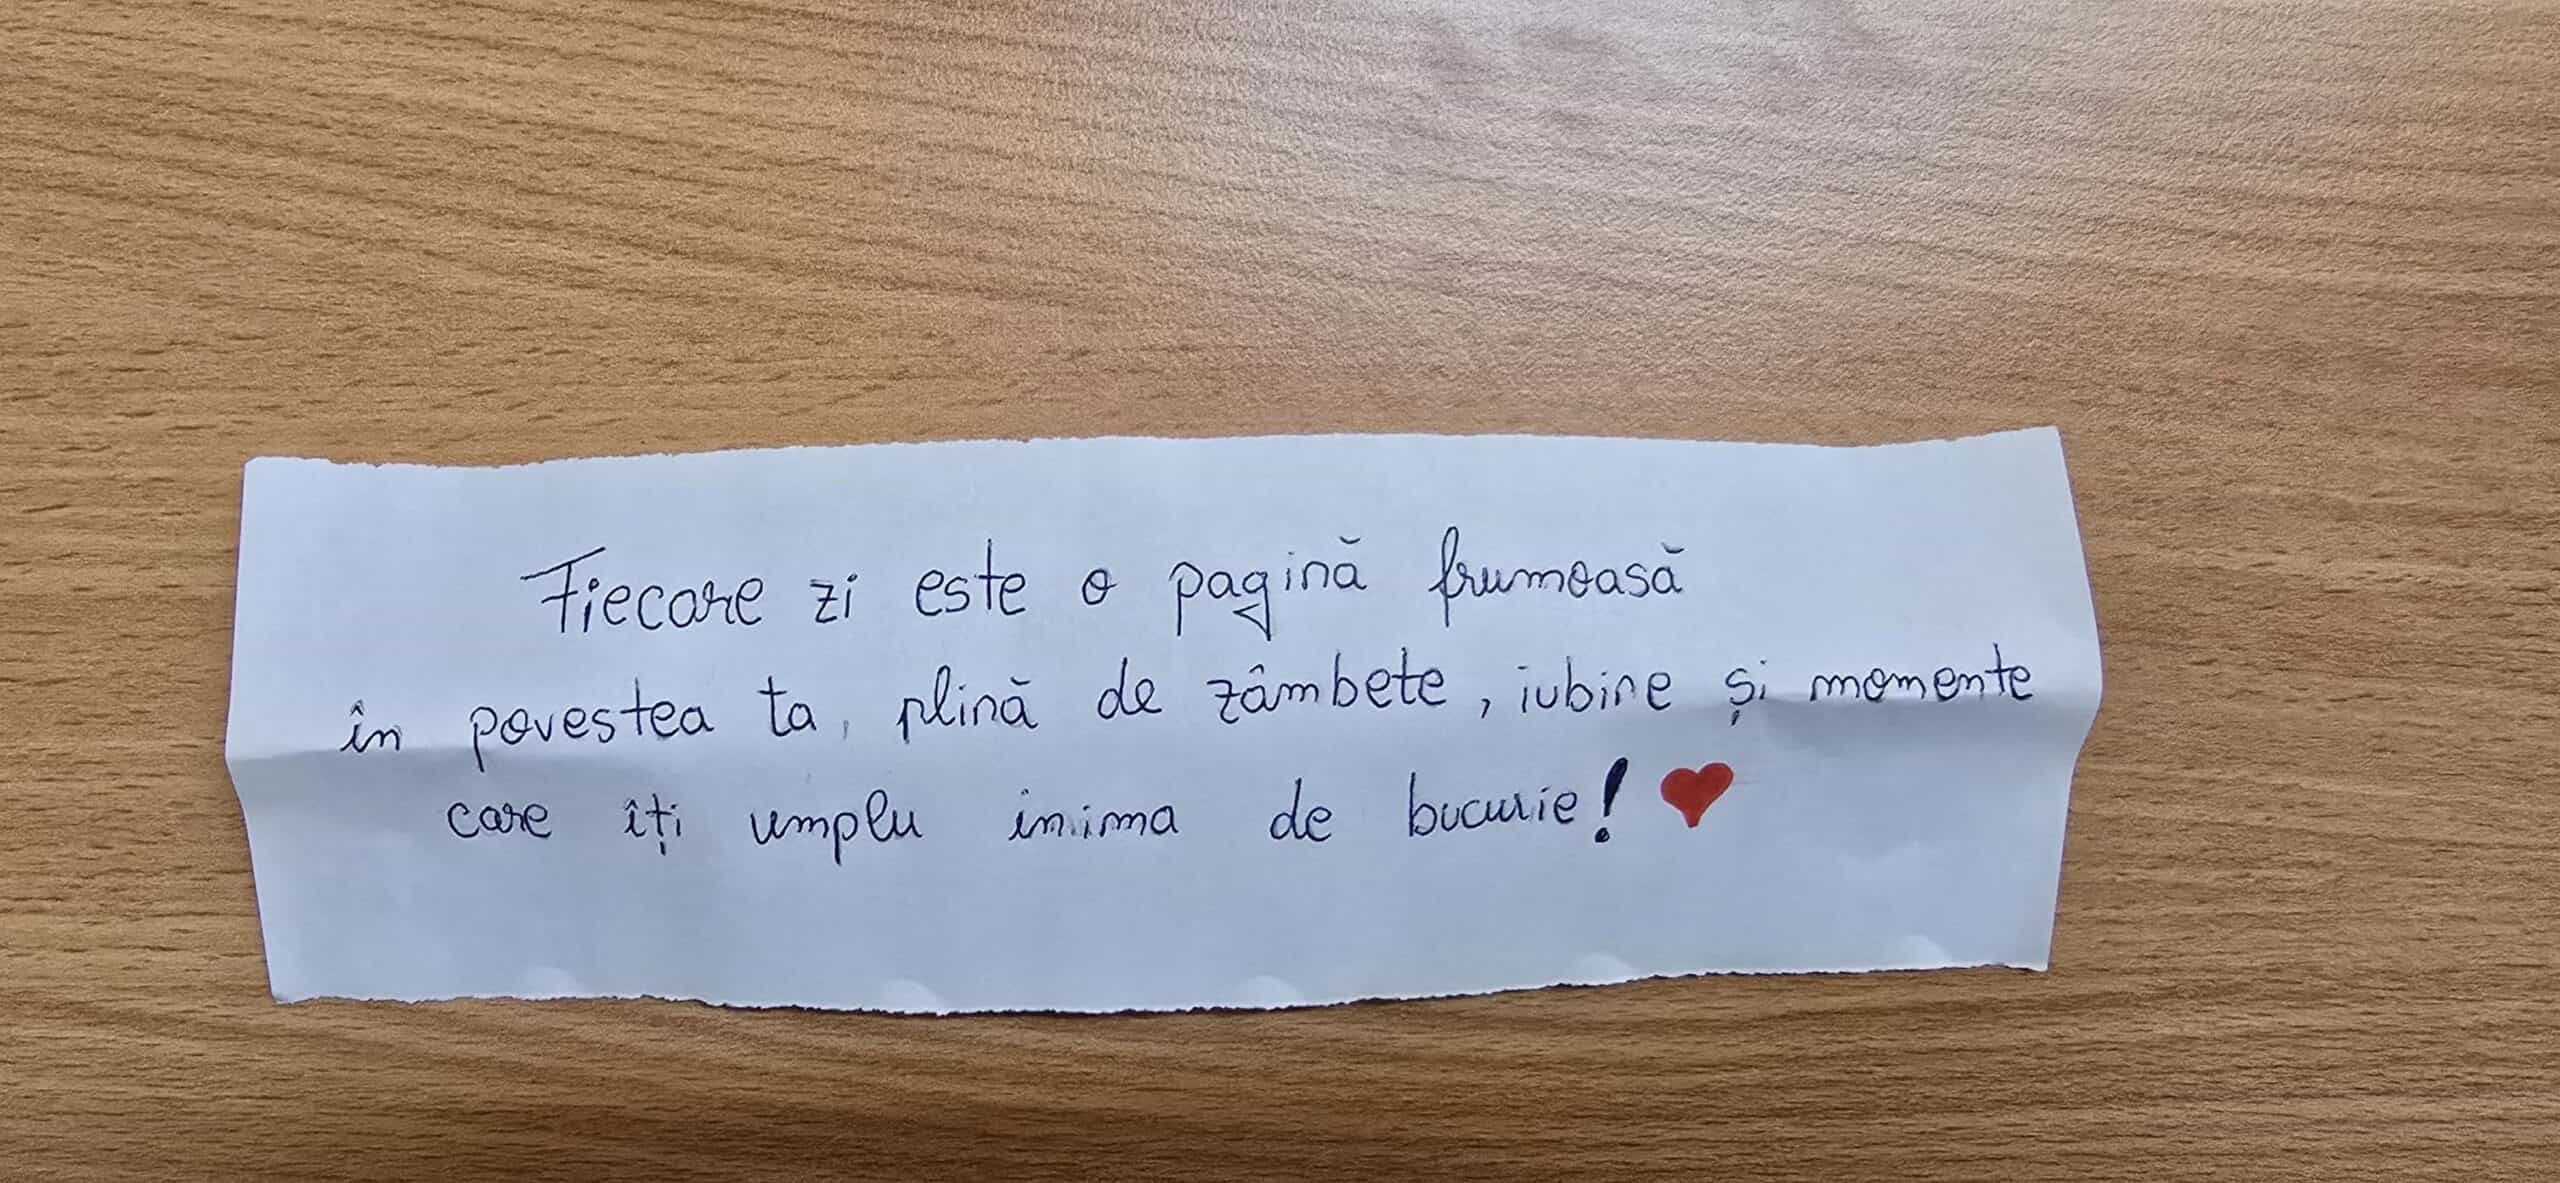 Fiecare zi este o pagină frumoasă
în povestea ta, plină de zâmbete, iubire și momente
care îți umplu inima de bucurie! ♥